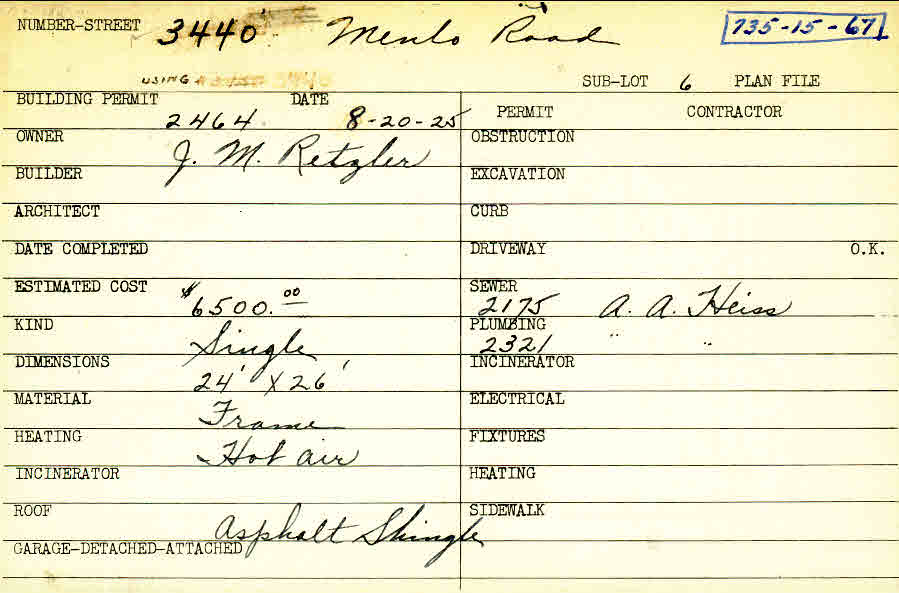 NUMBER-STREET 3440 Menlo Road 735-15-67
USING 3440 SUB-LOT 6 PLAN FILE
BUILDING PERMIT DATE PERMIT CONTRACTOR
2464 8-20-25
OWNER OBSTRUCTION
J. M. Retzler
BUILDER EXCAVATION
ARCHITECT CURB
DATE COMPLETED DRIVEWAY O.K.
ESTIMATED COST SEWER
$6500.00 2175 A. A. Heiss
KIND PLUMBING
Single 2321 " "
DIMENSIONS INCINERATOR
24' X 26'
MATERIAL ELECTRICAL
Frame
HEATING FIXTURES
Hot air
INCINERATOR HEATING
ROOF SIDEWALK
Asphalt Shingle
GARAGE-DETACHED-ATTACHED